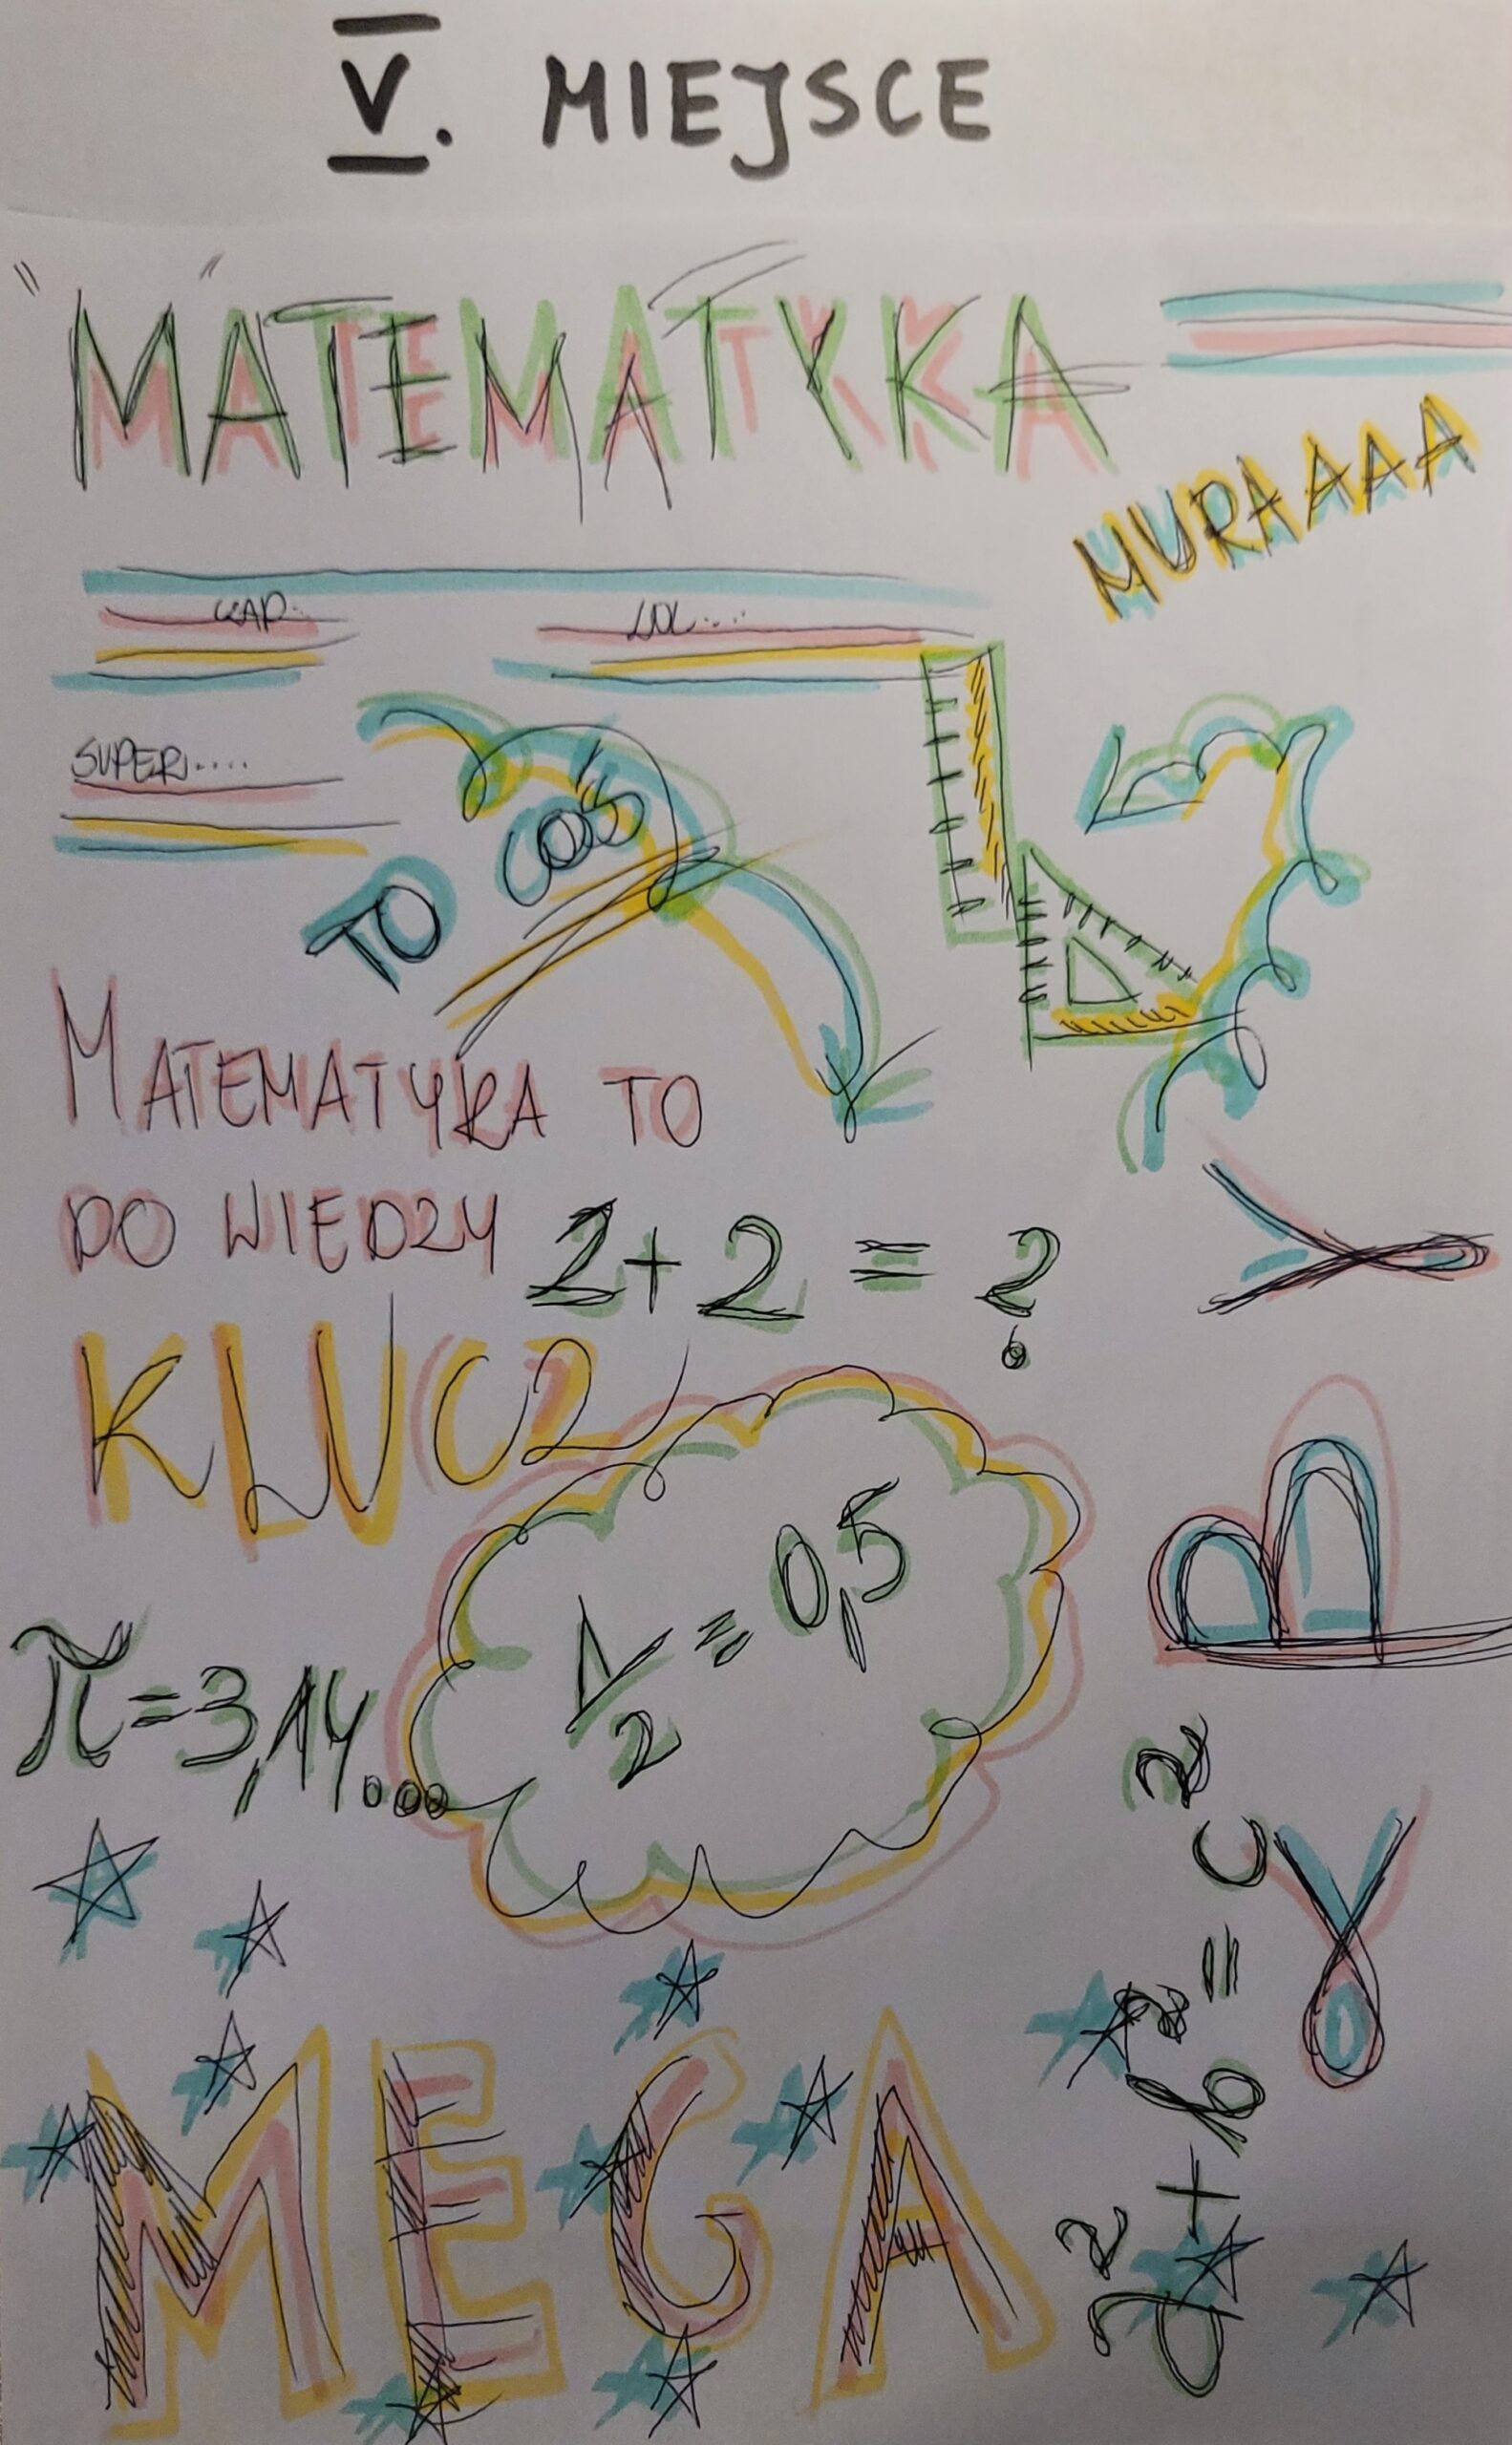 V. MIEJSCE
"MATEMATYKA"
MURAAAA
LOL....
SUPER.....
TO COŚ
MATEMATYKA TO
DO WIEDZY
2+2=?
KLUCZ
1/2=0,5
π=3,14...
α
β
γ
a²+b²=c²
MEGA